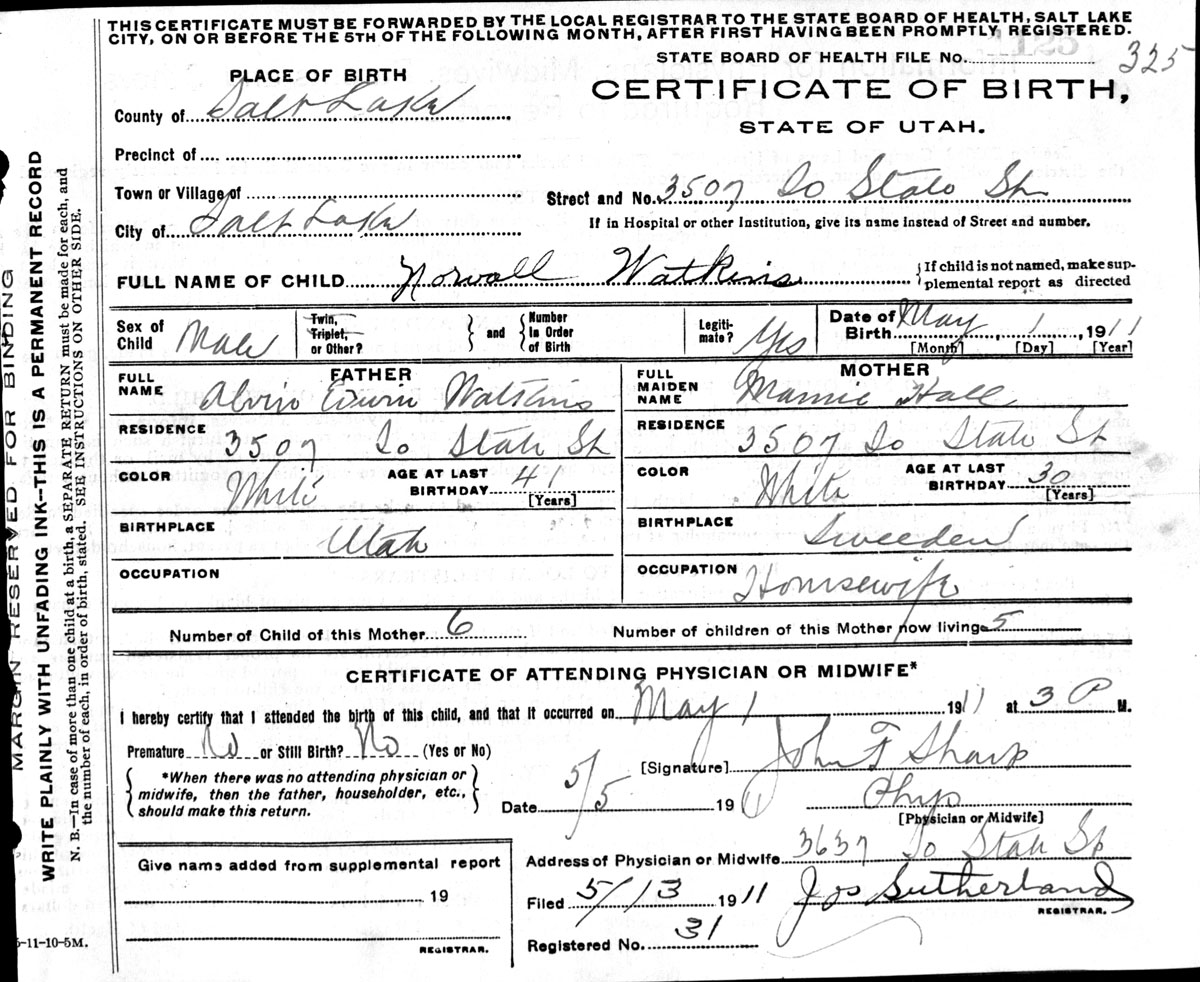 THIS CERTIFICATE MUST BE FORWARDED BY THE LOCAL REGISTRAR TO THE STATE BOARD OF HEALTH, SALT LAKE
CITY, ON OR BEFORE THE 5TH OF THE FOLLOWING MONTH, AFTER FIRST HAVING BEEN PROMPTLY REGISTERED.
STATE BOARD OF HEALTH FILE NO. 325
PLACE OF BIRTH
CERTIFICATE OF BIRTH,
STATE OF UTAH.
County of Salt Lake
Precinct of
Town or Village of
Street and No. 3507 So State St
City of Salt Lake
If in Hospital or other Institution, give its name instead of Street and number.
FULL NAME OF CHILD Norvall Watkins
{If child is not named, make sup-
plemental report as directed
Sex of Child Male
Twin, Triplet, or Other? } and { Number in Order of Birth
Legiti-mate? Yes
Date of Birth May 1, 1911
[Month] [Day] [Year]
FATHER
FULL NAME Alvin Erwin Watkins
RESIDENCE 3507 So State St
COLOR White AGE AT LAST BIRTHDAY 41 [Years]
BIRTHPLACE Utah
OCCUPATION
MOTHER
FULL MAIDEN NAME Mamie Hall
RESIDENCE 3507 So State St
COLOR White AGE AT LAST BIRTHDAY 30 [Years]
BIRTHPLACE Sweeden
OCCUPATION Housewife
Number of Child of this Mother 6 Number of children of this Mother now living 5
CERTIFICATE OF ATTENDING PHYSICIAN OR MIDWIFE*
I hereby certify that I attended the birth of this child, and that it occurred on May 1 1911 at 3 P M.
Premature No or Still Birth? No (Yes or No)
[Signature] John F Sharp
{*When there was no attending physician or
midwife, then the father, householder, etc.,
should make this return.}
Date 5/5 19
Phys
[Physician or Midwife]
Give name added from supplemental report
19
REGISTRAR.
Address of Physician or Midwife 3637 So State St
Filed 5/13 1911 Jos Sutherland
REGISTRAR.
Registered No. 31
5-11-10-5M.
MARGIN RESERVED FOR BINDING
WRITE PLAINLY WITH UNFADING INK--THIS IS A PERMANENT RECORD
N. B.—In case of more than one child at a birth, a SEPARATE RETURN must be made for each, and
the number of each, in order of birth, stated. SEE INSTRUCTIONS ON OTHER SIDE.